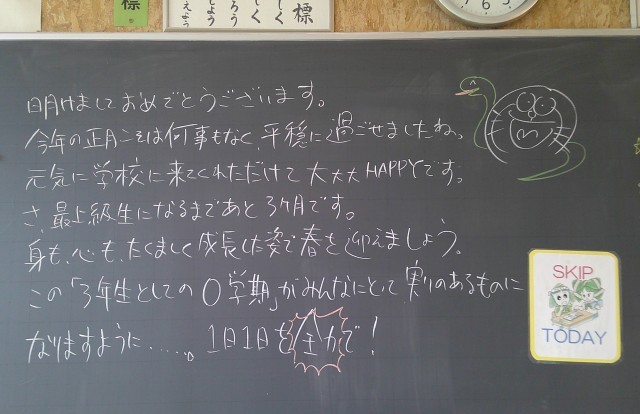 標
しく
よう
ろう
しく
標
えよう
明けましておめでとうございます。
今年の正月こそは何事もなく、平穏に過ごせましたね。
元気に学校に来てくれただけで大大大HAPPYです。
さ、最上級生になるまであと3ヶ月です。
身も、心も、たくましく成長した姿で春を迎えましょう。
この「3年生としての0学期」がみんなにとって実りのあるものに
なりますように……。1日1日を全力で!
SKIP
TODAY